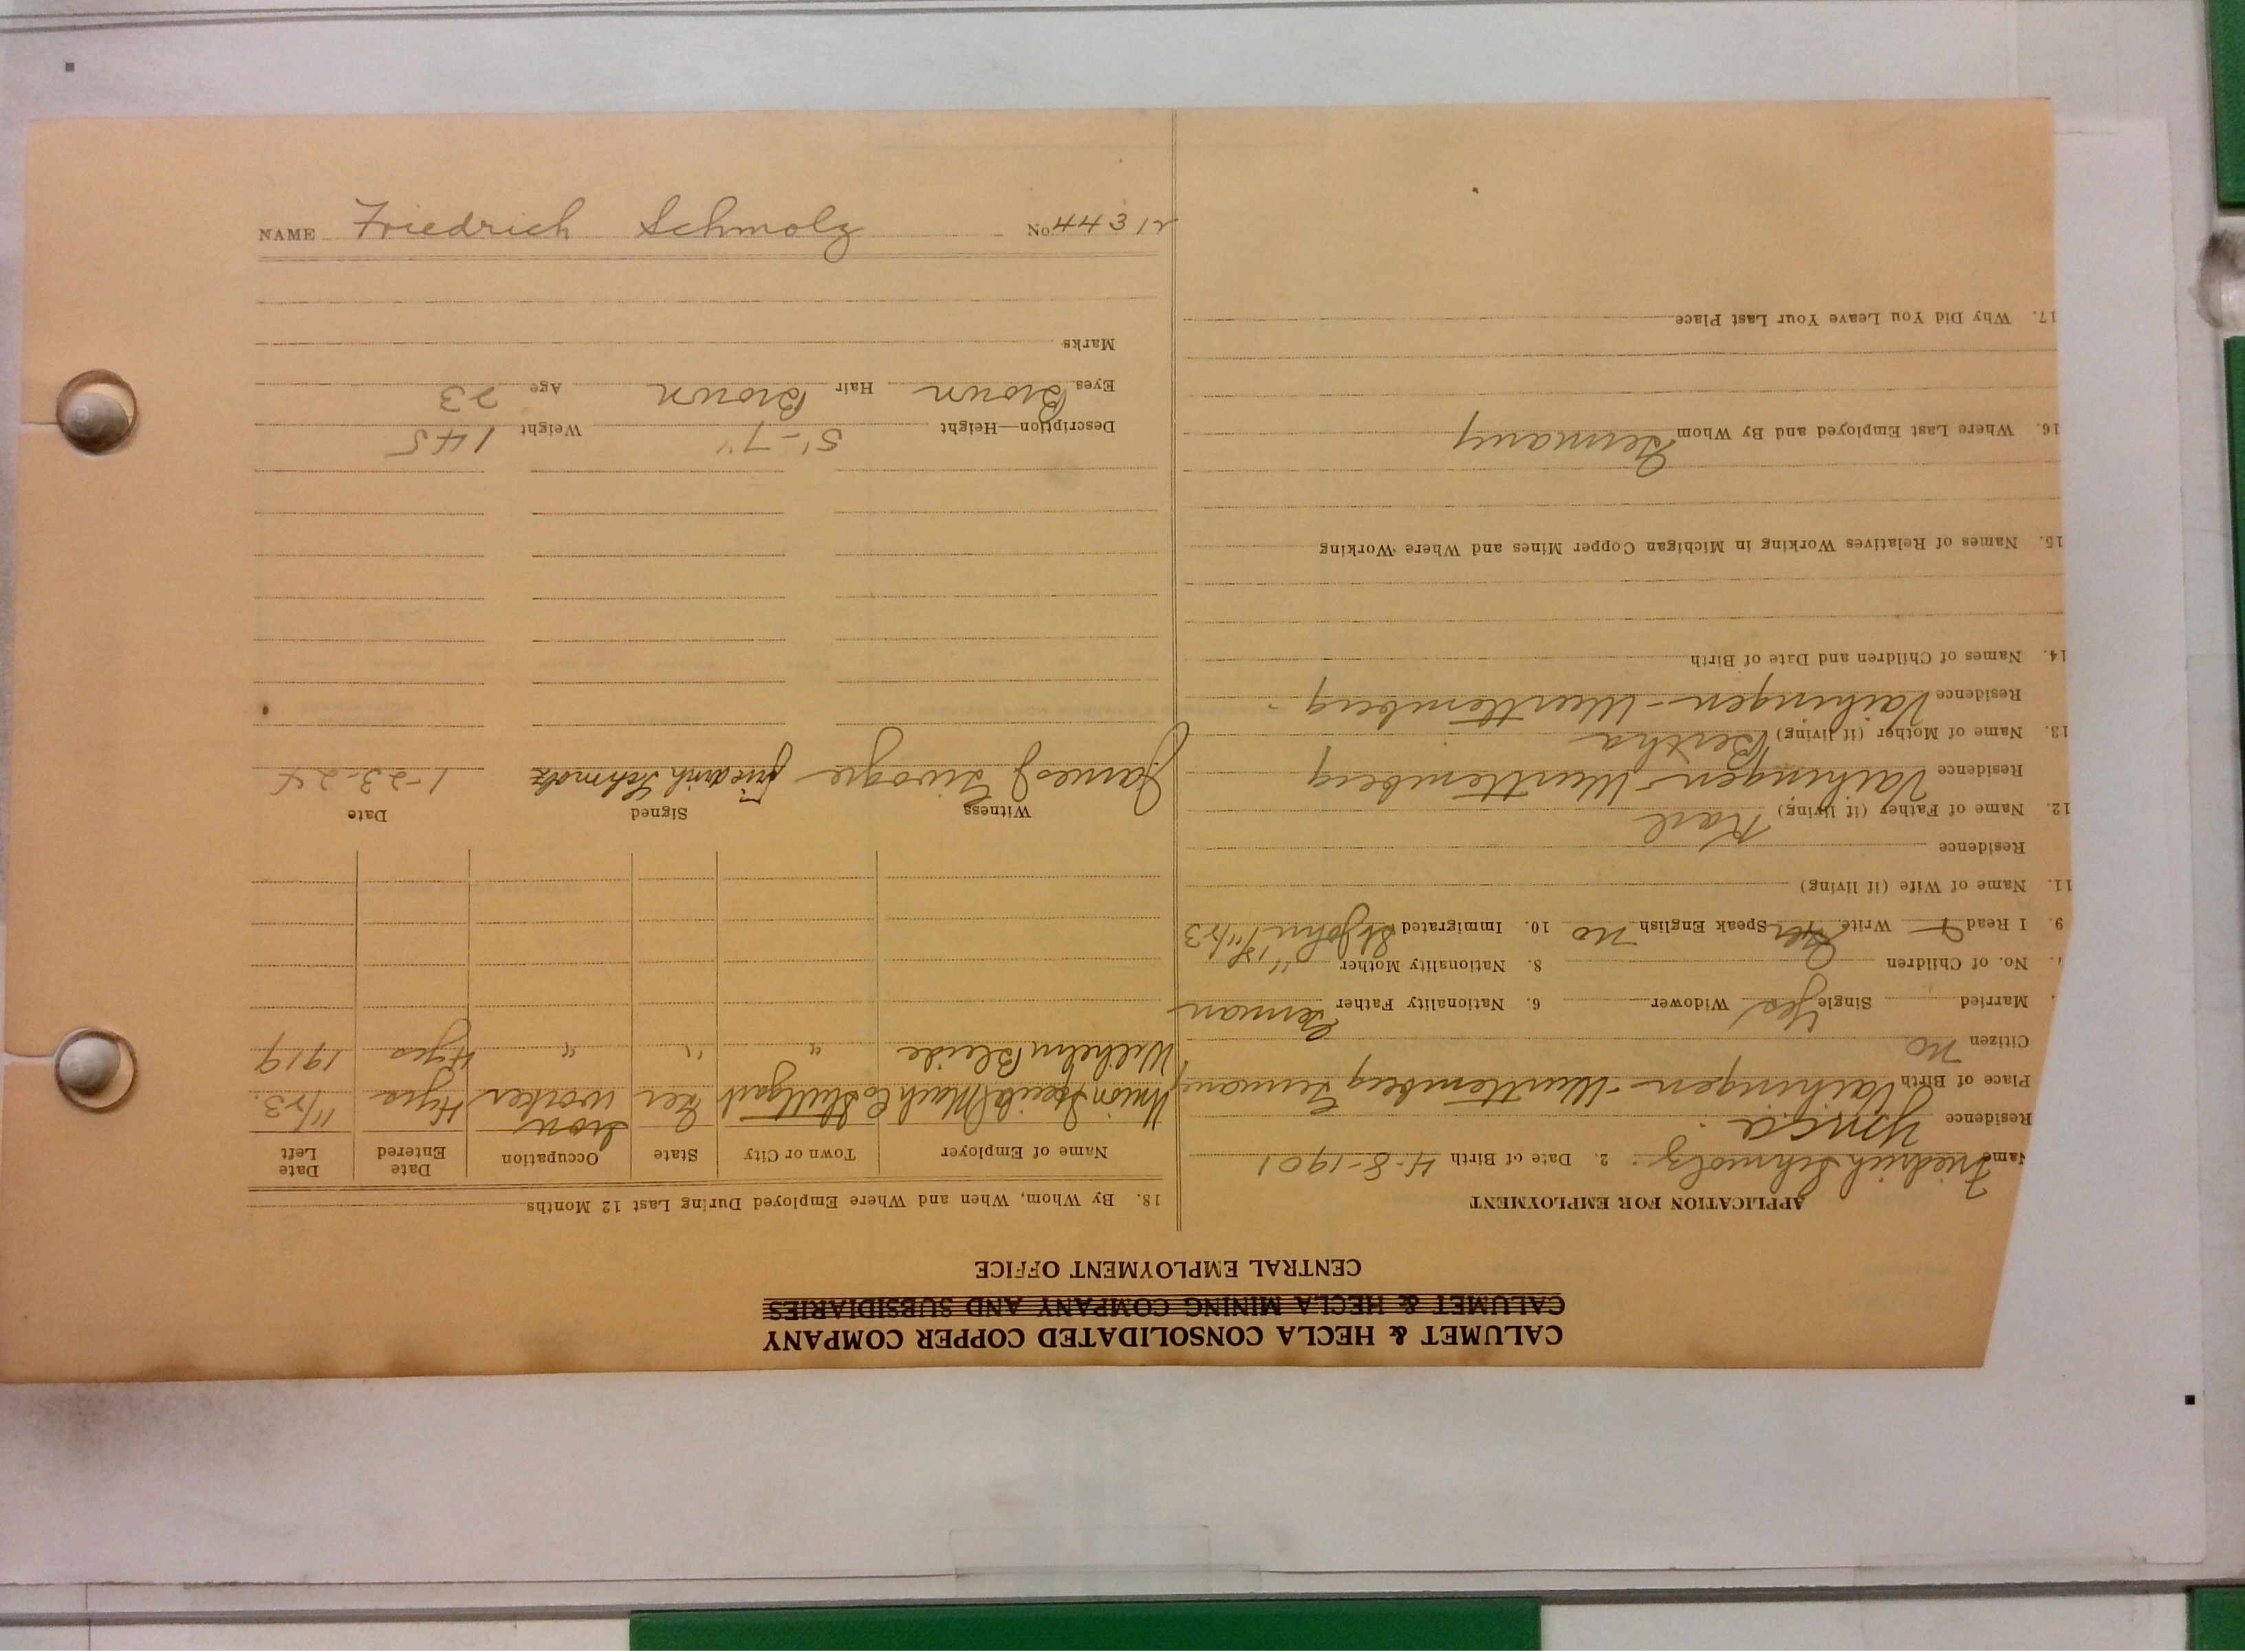 CALUMET & HECLA CONSOLIDATED COPPER COMPANY
CALUMET & HECLA MINING COMPANY AND SUBSIDIARIES
CENTRAL EMPLOYMENT OFFICE
APPLICATION FOR EMPLOYMENT
Name Friedrich Schmolz. 2. Date of Birth 4-8-1901
Residence YMCA.
Place of Birth Vaihingen-Wurttemberg Germany
Citizen no
Married Single Yes Widower 6. Nationality Father German
No. of Children 8. Nationality Mother "
9. I Read Write Ger Speak English no 10. Immigrated St John 11/23
11. Name of Wife (if living)
Residence
12. Name of Father (if living) Karl
Residence Vaihingen-Wurttemberg
13. Name of Mother (if living) Bertha
Residence Vaihingen-Wurttemberg
14. Names of Children and Date of Birth
15. Names of Relatives Working in Michigan Copper Mines and Where Working
16. Where Last Employed and By Whom Germany
17. Why Did You Leave Your Last Place
18. By Whom, When and Where Employed During Last 12 Months
Name of Employer Town or City State Occupation Date Entered Date Left
Union Special Mach Co Stuttgart Ger Iron worker 4 yrs 11/23.
Wilhelm Bleide " " " 4 yrs 1919
Witness Signed Date
James J Friedrich Schmolz 1-23-24
Description—Height 5'-7" Weight 145
Eyes Brown Hair Brown Age 23
Marks
NAME Friedrich Schmolz No. 44312